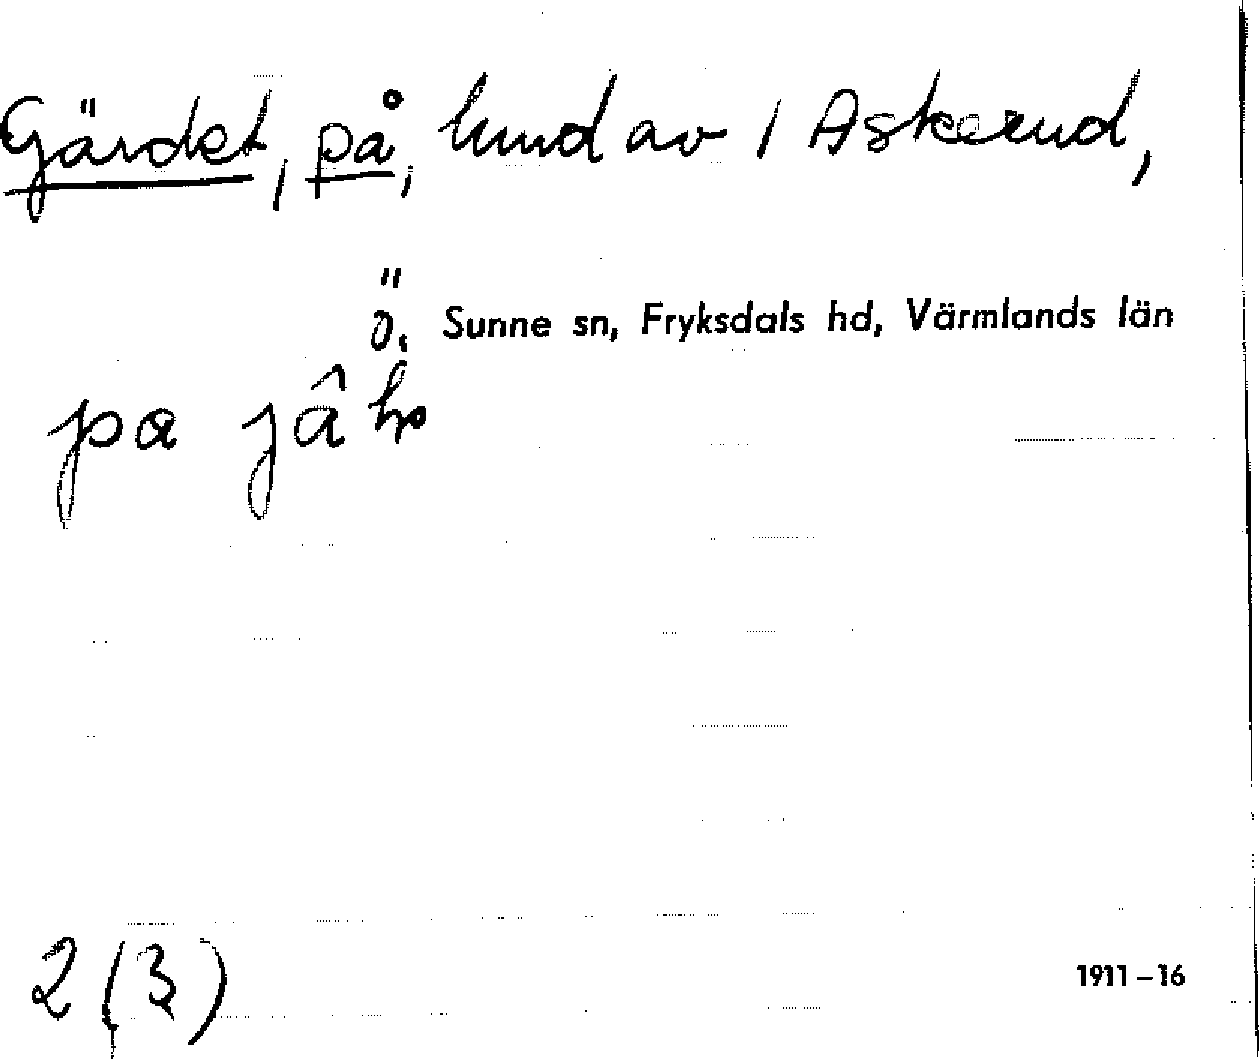 Gärdet, på, lund av 1 Askerud,
ö. Sunne sn, Fryksdals hd, Värmlands län
pa
2(3)
1911–16